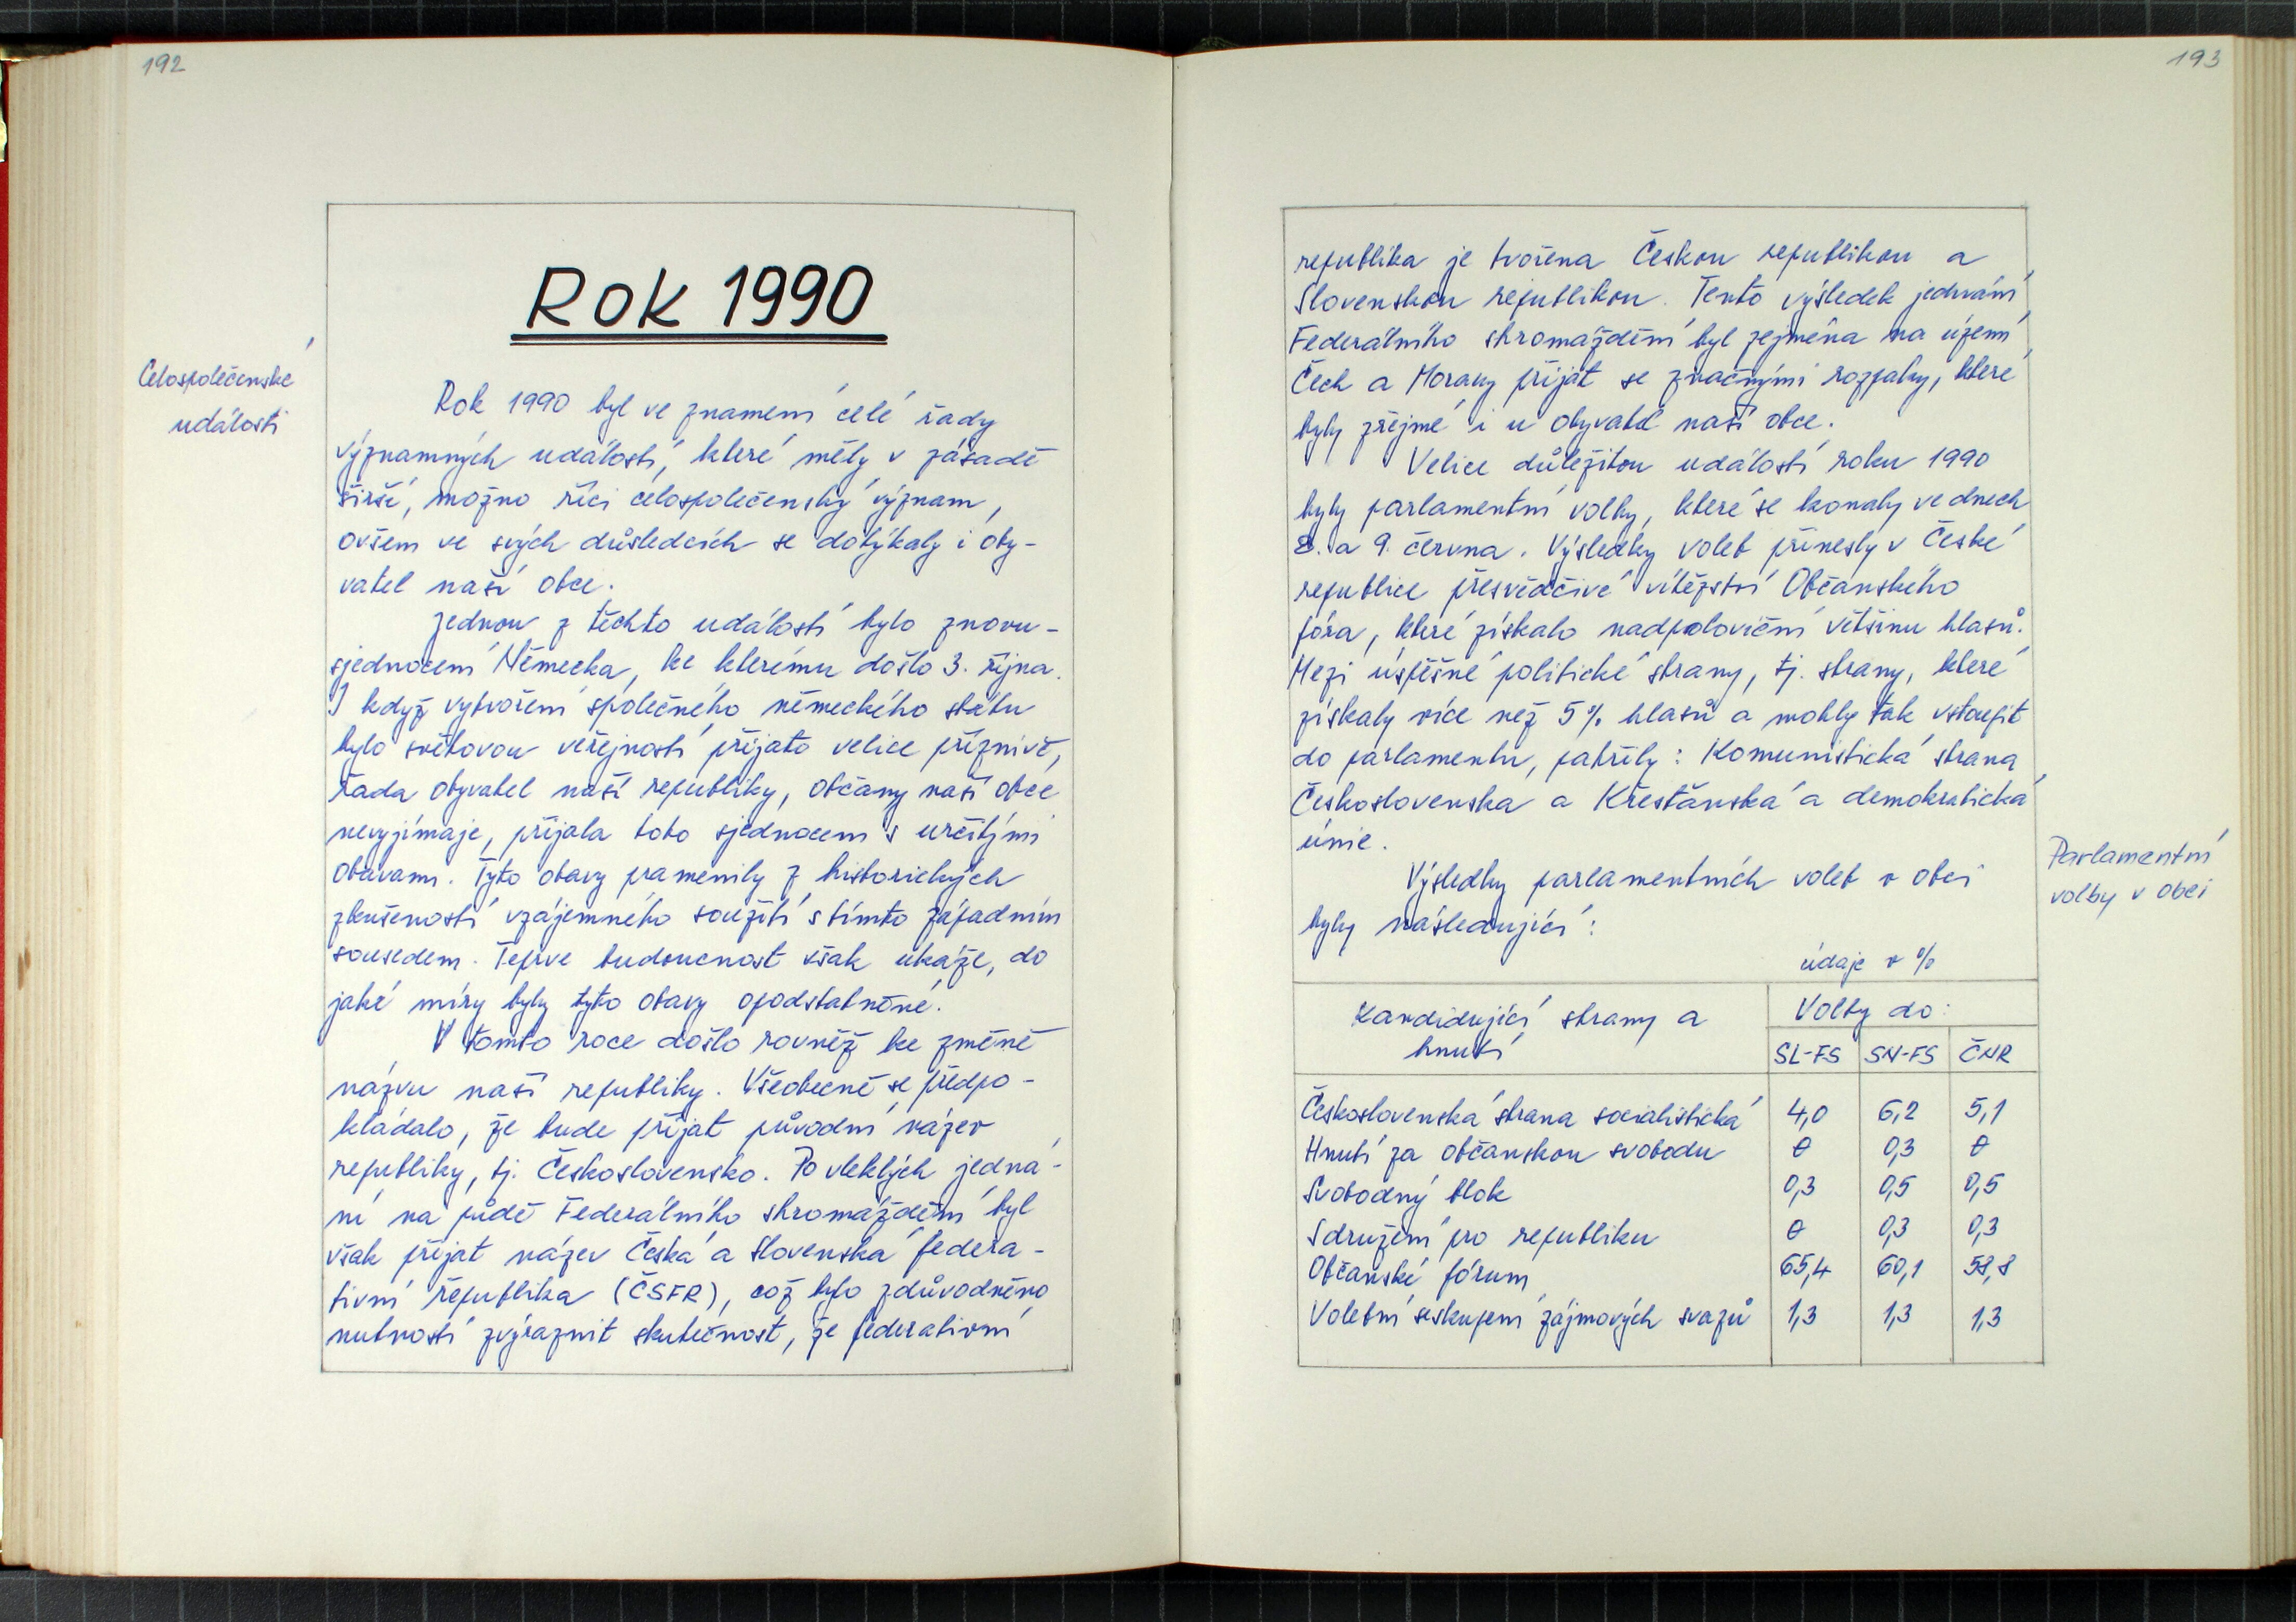 192
Rok 1990
Celospolečenské
události
Rok 1990 byl ve znamení celé řady
významných událostí, které měly v zásadě
širší, možno říci celospolečenský význam,
ovšem ve svých důsledcích se dotýkaly i oby-
vatel naší obce.
Jednou z těchto událostí bylo znovu-
sjednocení Německa, ke kterému došlo 3. října.
I když vytvoření společného německého státu
bylo světovou veřejností přijato velice příznivě,
řada obyvatel naší republiky, občany naší obce
nevyjímaje, přijala toto sjednocení s určitými
obavami. Tyto obavy pramenily z historických
zkušeností vzájemného soužití s tímto západním
sousedem. Teprve budoucnost však ukáže, do
jaké míry byly tyto obavy opodstatněné.
V tomto roce došlo rovněž ke změně
názvu naší republiky. Všeobecně se předpo-
kládalo, že bude přijat původní název
republiky, tj. Československo. Po vleklých jedná-
ní na půdě Federálního shromáždění byl
však přijat název Česká a Slovenská federa-
tivní republika (ČSFR), což bylo zdůvodněno
nutností zvýraznit skutečnost, že federativní
193
republika je tvořena Českou republikou a
Slovenskou republikou. Tento výsledek jednání
Federálního shromáždění byl zejména na území
Čech a Moravy přijat se značnými rozpaky, které
byly zřejmé i u obyvatel naší obce.
Velice důležitou událostí roku 1990
byly parlamentní volby, které se konaly ve dnech
8. a 9. června. Výsledky voleb přinesly v České
republice přesvědčivé vítězství Občanského
fóra, které získalo nadpoloviční většinu hlasů.
Mezi úspěšné politické strany, tj. strany, které
získaly více než 5% hlasů a mohly tak vstoupit
do parlamentu, patřily: Komunistická strana
Československa a Křesťanská a demokratická
unie.
Parlamentní
volby v obci
Výsledky parlamentních voleb v obci
byly následující:
údaje v %
Kandidující strany a hnutí Volby do:
SL-FS SN-FS ČNR
Československá strana socialistická 4,0 6,2 5,1
Hnutí za občanskou svobodu 0 0,3 0
Svobodný blok 0,3 0,5 0,5
Sdružení pro republiku 0 0,3 0,3
Občanské fórum 65,4 60,1 58,8
Volební seskupení zájmových svazů 1,3 1,3 1,3